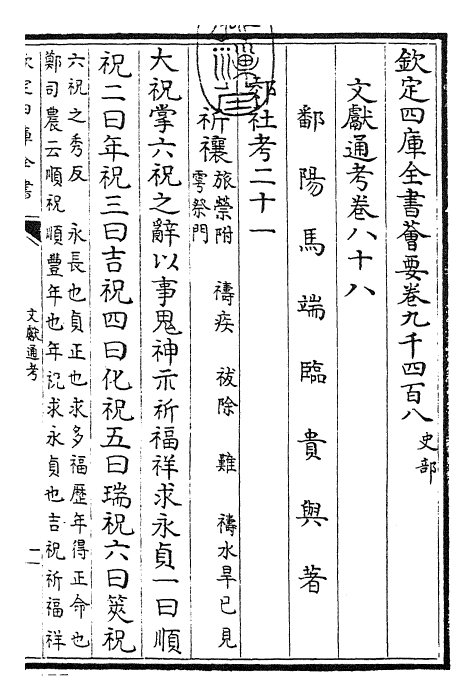 欽定四庫全書薈要卷九千四百八 史部
文獻通考卷八十八
鄱陽馬端臨貴與著
郊社考二十一
祈禳 旅禜附 禱疾 祓除 難 禱水旱已見
雩祭門
大祝掌六祝之辭以事鬼神示祈福祥求永貞一曰順
祝二曰年祝三曰吉祝四曰化祝五曰瑞祝六曰筴祝
六祝之秀反 永長也貞正也求多福歷年得正命也
鄭司農云順祝順豐年也年祝求永貞也吉祝祈福祥
欽定四庫全書
文獻通考
一